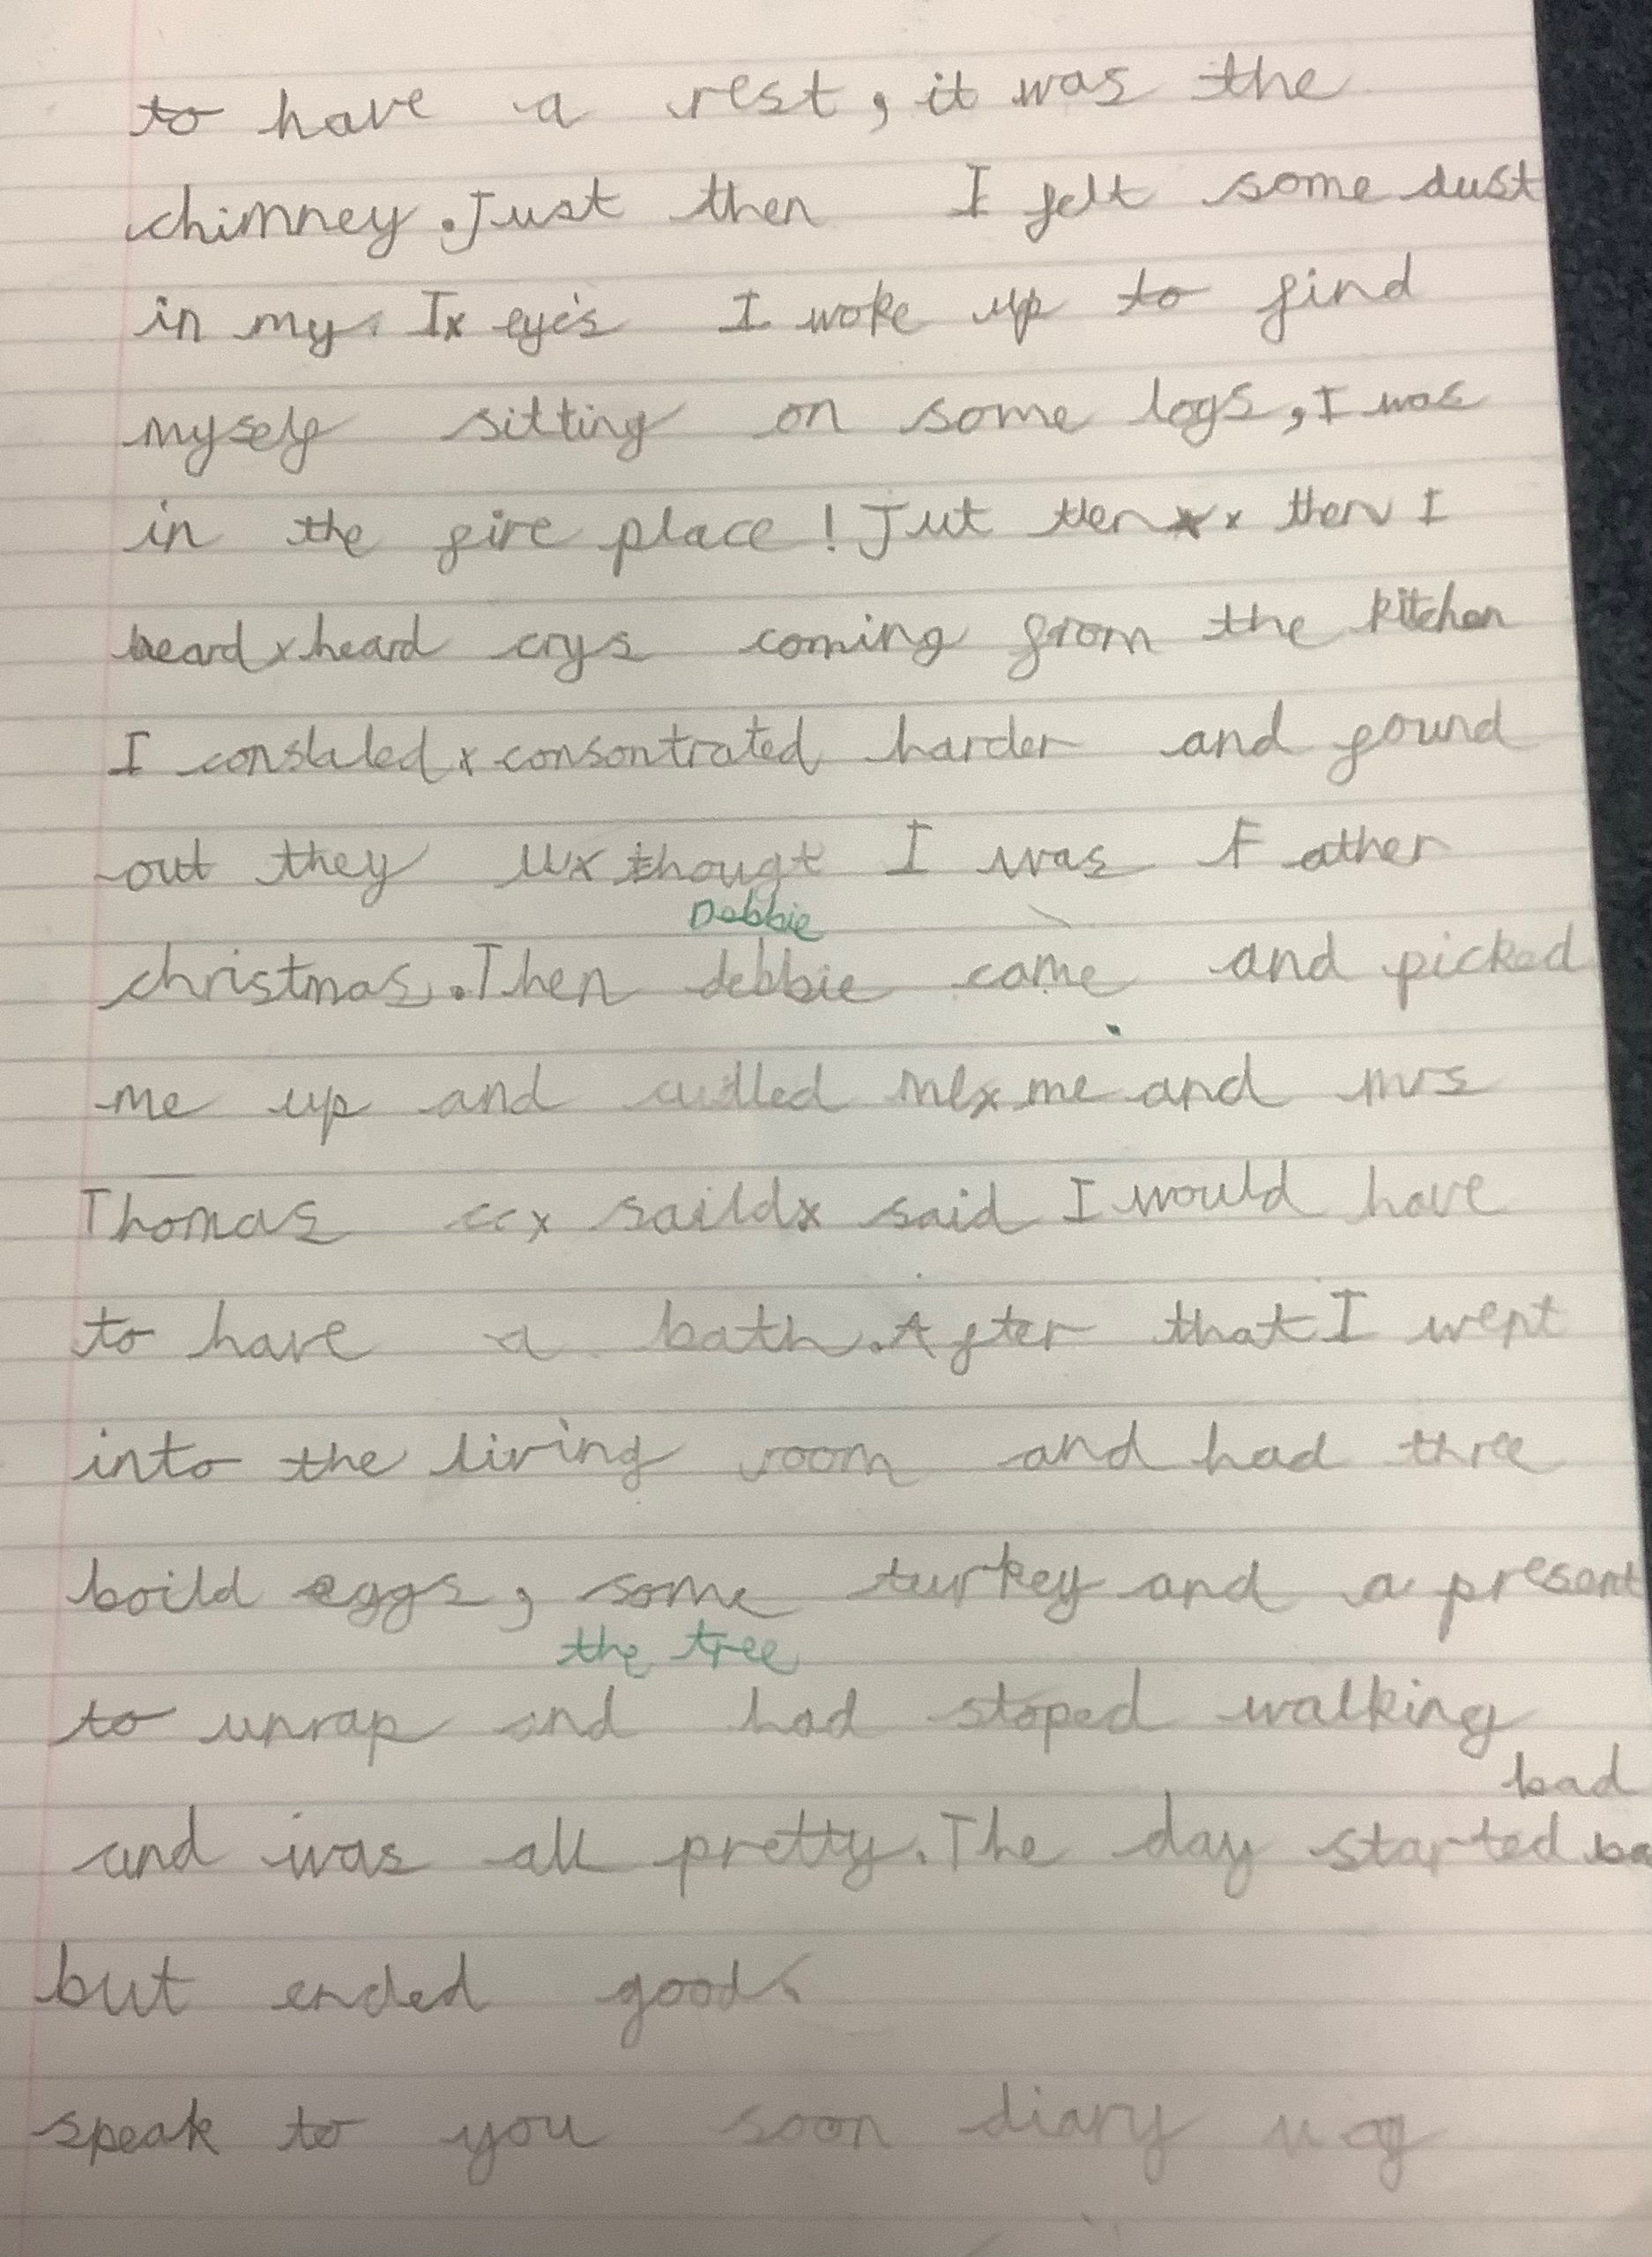 to have a rest, it was the
chimney. Just then I felt some dust
in my Ix eye's I woke up to find
myself sitting on some logs, I was
in the fire place! Jut then xx then I
heard x heard crys coming from the kitchen
I consontrated harder and found
out they thougt I was Father
christmas. Then debbie came and picked
Debbie
me up and cudled me x me and mrs
Thomas ccx saildx said I would have
to have a bath. After that I went
into the living room and had three
boild eggs, some turkey and a present
the tree
to unrap and had stoped walking
and was all pretty. The day started ba
bad
but ended good.
speak to you soon diary